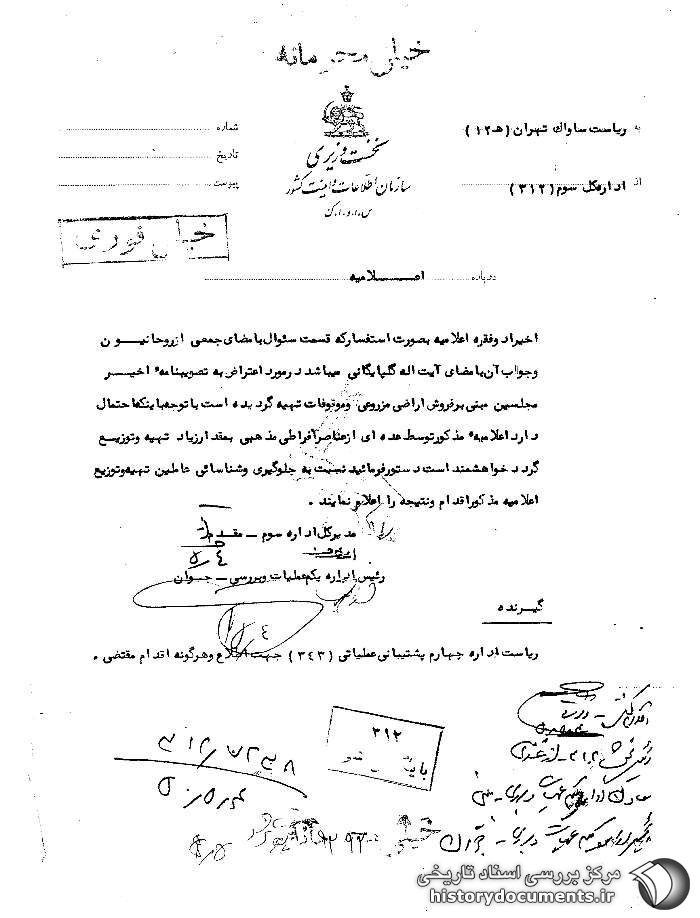 خیلی محرمانه
به ریاست ساواک تهران (هـ ۱۲)
از اداره کل سوم (۳۱۲)
نخست وزیری
سازمان اطلاعات و امنیت کشور
س.ا.و.ا.ک
شماره
تاریخ
پیوست
خیلی فوری
درباره اعلامیه
اخیراً دو فقره اعلامیه بصورت استفسار که قسمت سئوال بامضای جمعی از روحانیون
و جواب آن بامضای آیت اله گلپایگانی میباشد در مورد اعتراض به تصویبنامه اخیر
مجلسین مبنی بر فروش اراضی مزروعی و موقوفات تهیه گردیده است با توجه باینکه احتمال
دارد اعلامیه مذکور توسط عده ای از عناصر افراطی مذهبی بمقدار زیاد تهیه و توزیع
گردد خواهشمند است دستور فرمائید نسبت به جلوگیری و شناسائی عاملین تهیه و توزیع
اعلامیه مذکور اقدام و نتیجه را اعلام نمایند .
مدیر کل اداره سوم ـ مقدم
رئیس اداره یکم عملیات و بررسی ـ جوان
گیرنده
ریاست اداره چهارم پشتیبانی عملیاتی (۳۴۳) جهت اطلاع و هرگونه اقدام مقتضی .
۳۱۲
۳۱۲/۷۲۳۸
مرکز بررسی اسناد تاریخی
historydocuments.ir